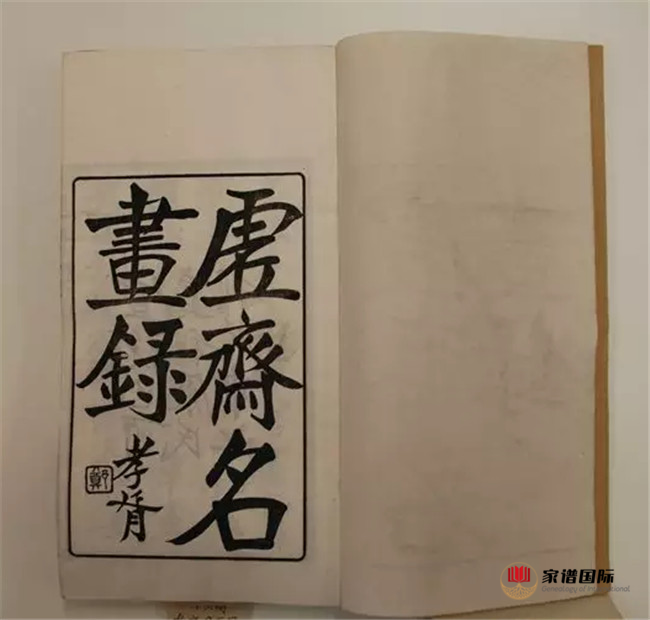 虛齋名
畫錄
孝胥
鄭
家谱国际
Genealogy of International